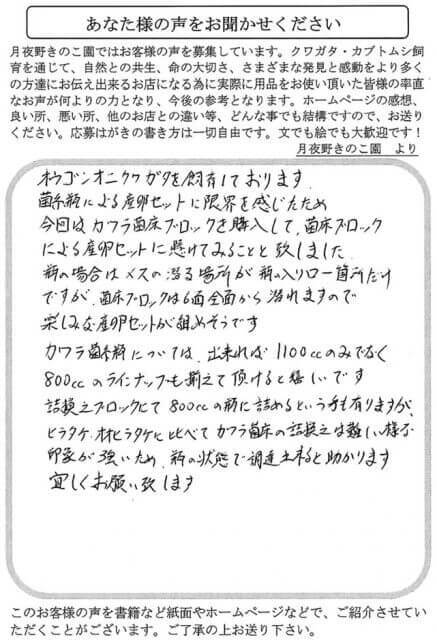 あなた様の声をお聞かせください
月夜野きのこ園ではお客様の声を募集しています。クワガタ・カブトムシ飼
育を通じて、自然との共生、命の大切さ、さまざまな発見と感動をより多く
の方達にお伝え出来るお店になる為に実際に用品をお使い頂いた皆様の率直
なお声が何よりの力となり、今後の参考となります。ホームページの感想、
良い所、悪い所、他のお店との違い等、どんな事でも結構ですので、お送り
ください。応募はがきの書き方は一切自由です。文でも絵でも大歓迎です！
月夜野きのこ園　より
オウゴンオニクワガタを飼育しております.
菌糸瓶による産卵セットに限界を感じたため
今回はカワラ菌床ブロックを購入して、菌床ブロック
による産卵セットに懸けてみることと致しました.
瓶の場合はメスの潜る場所が瓶の入り口一箇所だけ
ですが、菌床ブロックは6面全面から潜れますので
楽しみな産卵セットが組めそうです
カワラ菌糸瓶については、出来れば1100ccのみでなく
800ccのラインナップも揃えて頂けると嬉しいです
詰換えブロックにて800ccの瓶に詰めるという手も有りますが、
ヒラタケ・オオヒラタケに比べてカワラ菌床の詰換えは難しい様な
印象が強いため、瓶の状態で調達出来ると助かります
宜しくお願い致します
このお客様の声を書籍など紙面やホームページなどで、ご紹介させてい
ただくことがございます。ご了承の上お送り下さい。